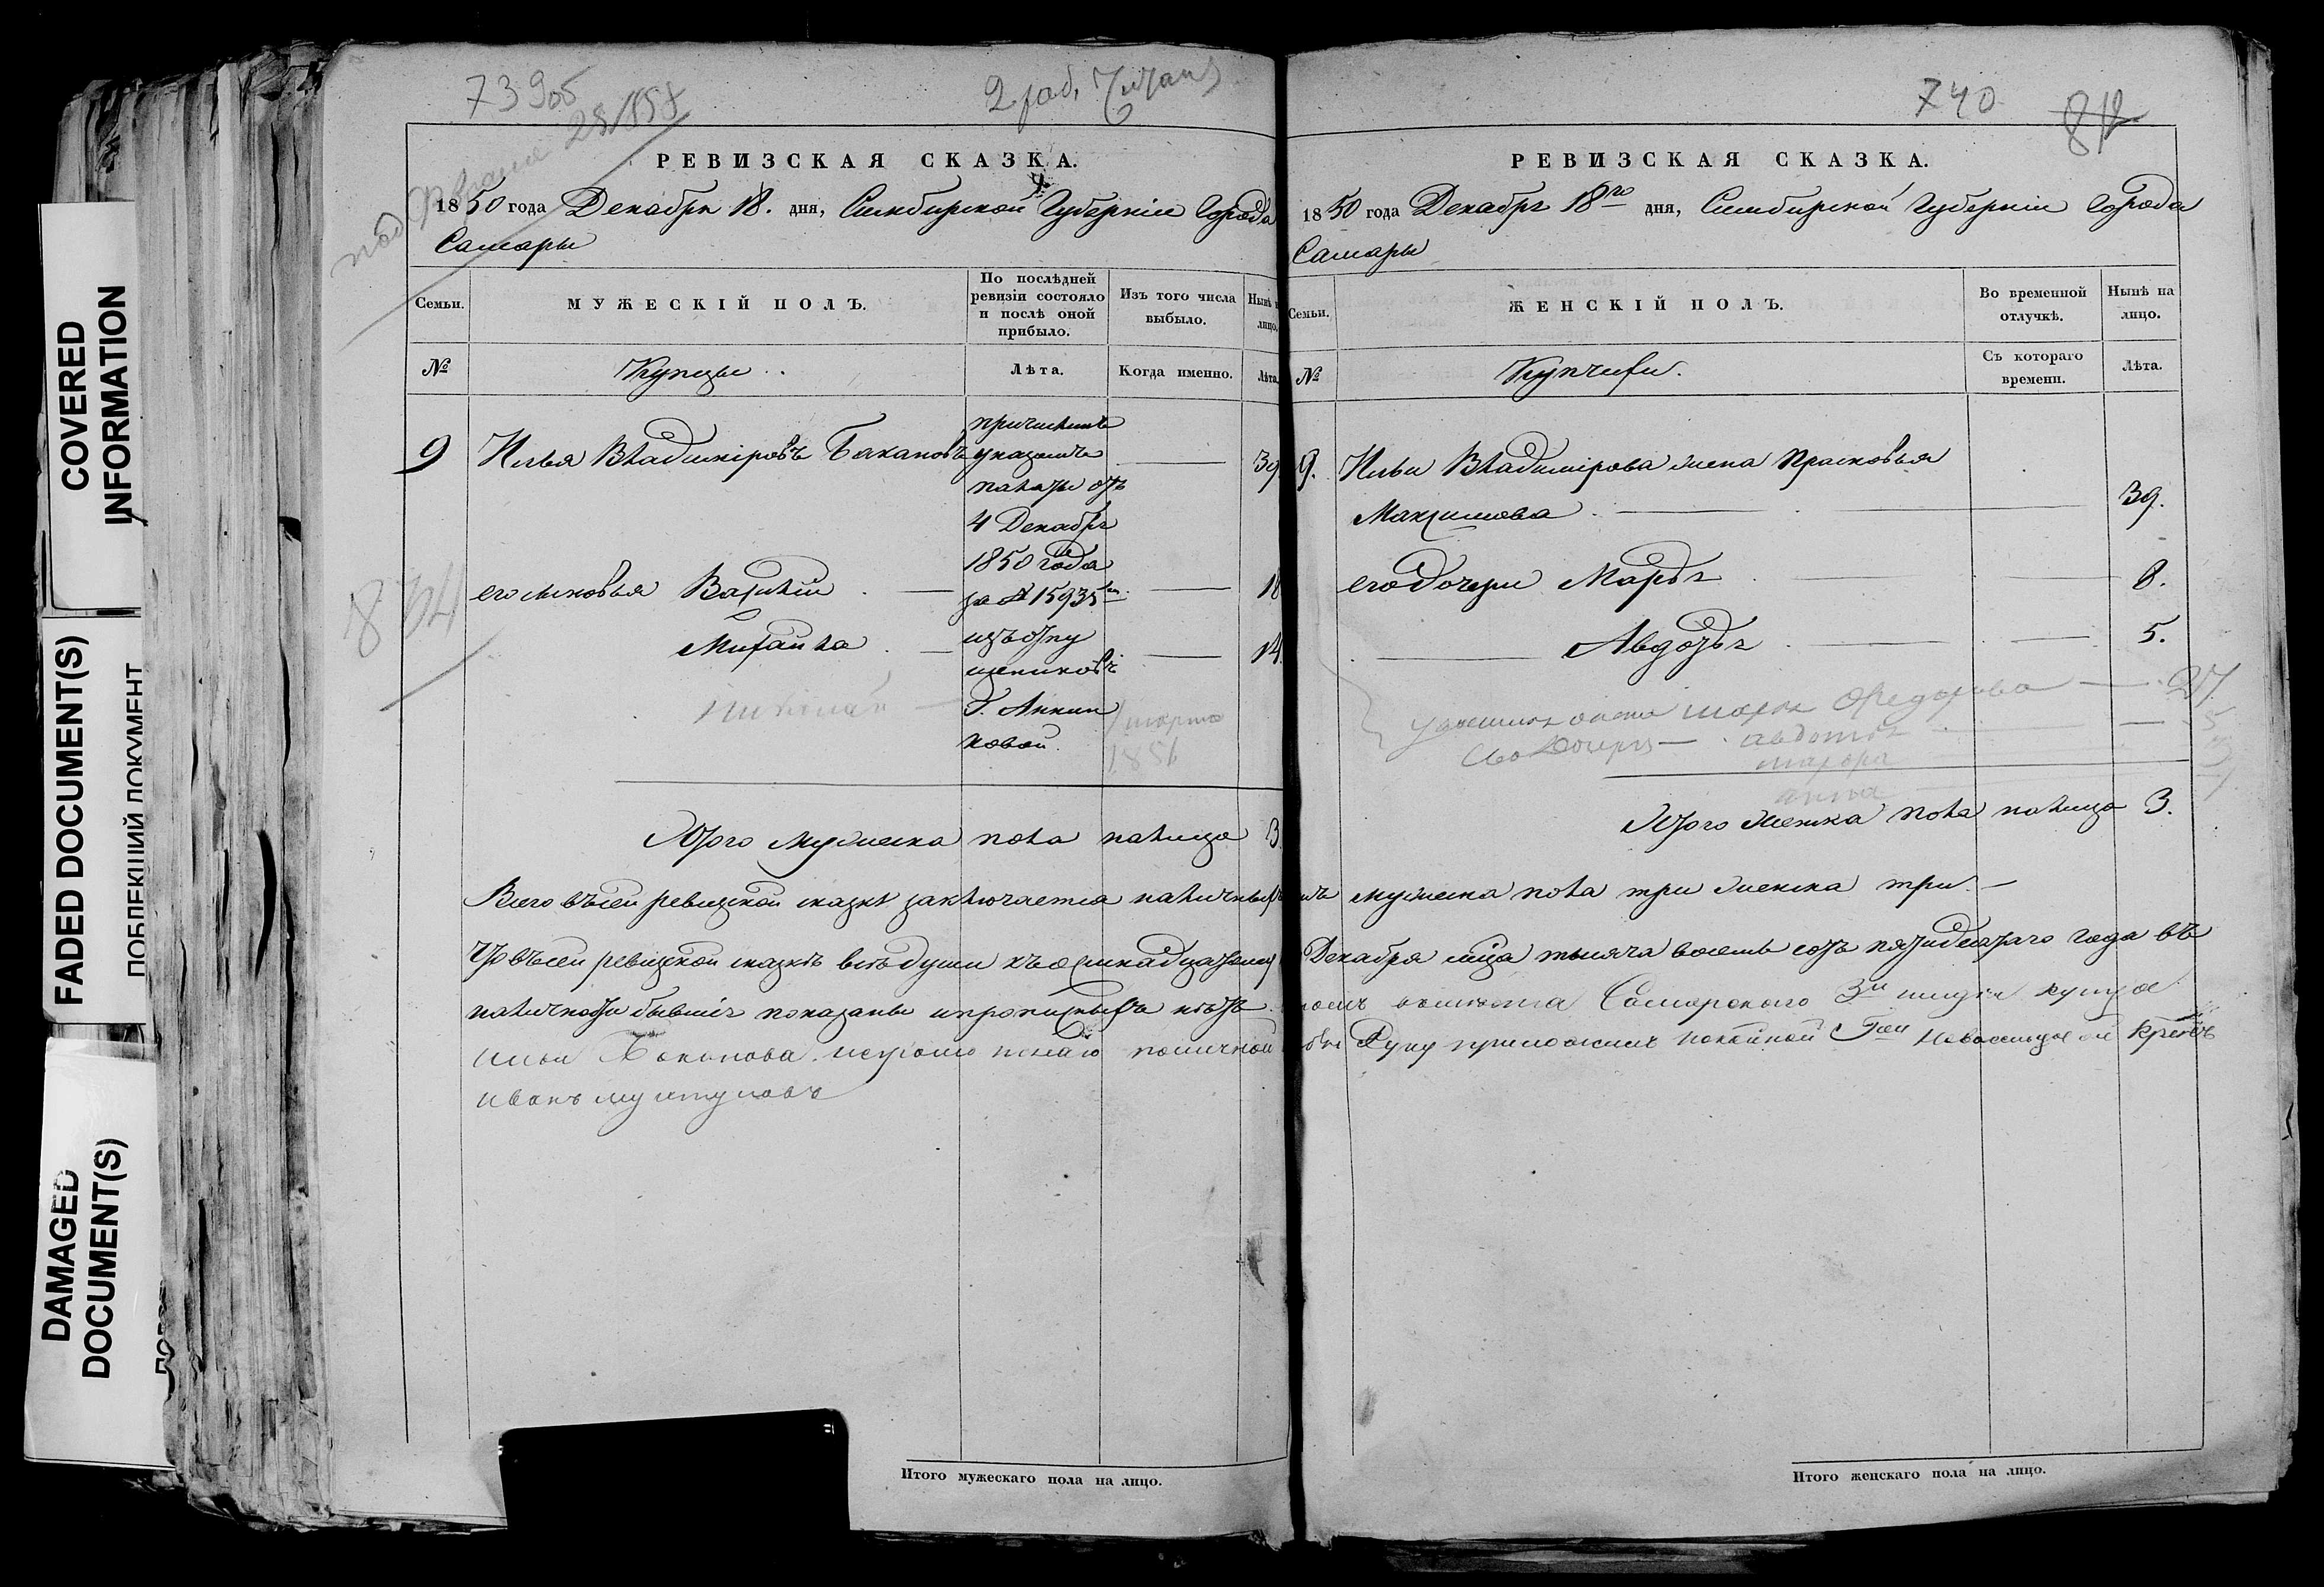 COVERED
INFORMATION
FADED DOCUMENT(S)
ПОБЛЕКШИЙ ДОКУМЕНТ
DAMAGED
DOCUMENT(S)
739об
2 раб.
РЕВИЗСКАЯ СКАЗКА.
1850 года Декабря 18. дня, Симбирской Губерніи Города
Самары
Семьи.
МУЖЕСКІЙ ПОЛЪ.
По послѣдней
ревизіи состояло
и послѣ оной
прибыло.
Изъ того числа
выбыло.
Нынѣ н
лицо.
№
Купцы
Лѣта.
Когда именно.
Лѣта.
9 Илья Владиміровъ Бакановъ 39
причисленъ
указомъ
палаты отъ
4 Декабря
1850 года
за № 15935
изъ отпу
щениковъ
Г. Аннин
ковой.
его сыновья Василій 18
Михайла 14.
Николай
марта
1851
834
Итого мужеска пола налицо 3.
Всего въ сей ревизской сказкѣ заключается наличныхъ
Что въ сей ревизской сказкѣ всѣ души къ осмнадцатому
наличности бывшія показаны и прописныхъ нѣтъ
ильи Баканова
иванъ
Итого мужескаго пола на лицо.
740
РЕВИЗСКАЯ СКАЗКА.
1850 года Декабря 18го дня, Симбирской Губерніи Города
Самары
Семьи.
ЖЕНСКІЙ ПОЛЪ.
Во временной
отлучкѣ.
Нынѣ на
лицо.
№
Купчихи.
Съ котораго
времени.
Лѣта.
9. Ильи Владимірова жена Прасковья
Максимова 39.
его дочери Марья 8.
Авдотья 5.
марья Федорова 27
его дочери авдотья 5
анна
Итого женска пола налицо 3.
мужеска пола три женска три.
Декабря мѣсяца тысяча восемь сотъ пятидесятаго года въ
Самарского 3й гильдіи купца
руку приложилъ
Итого женскаго пола на лицо.